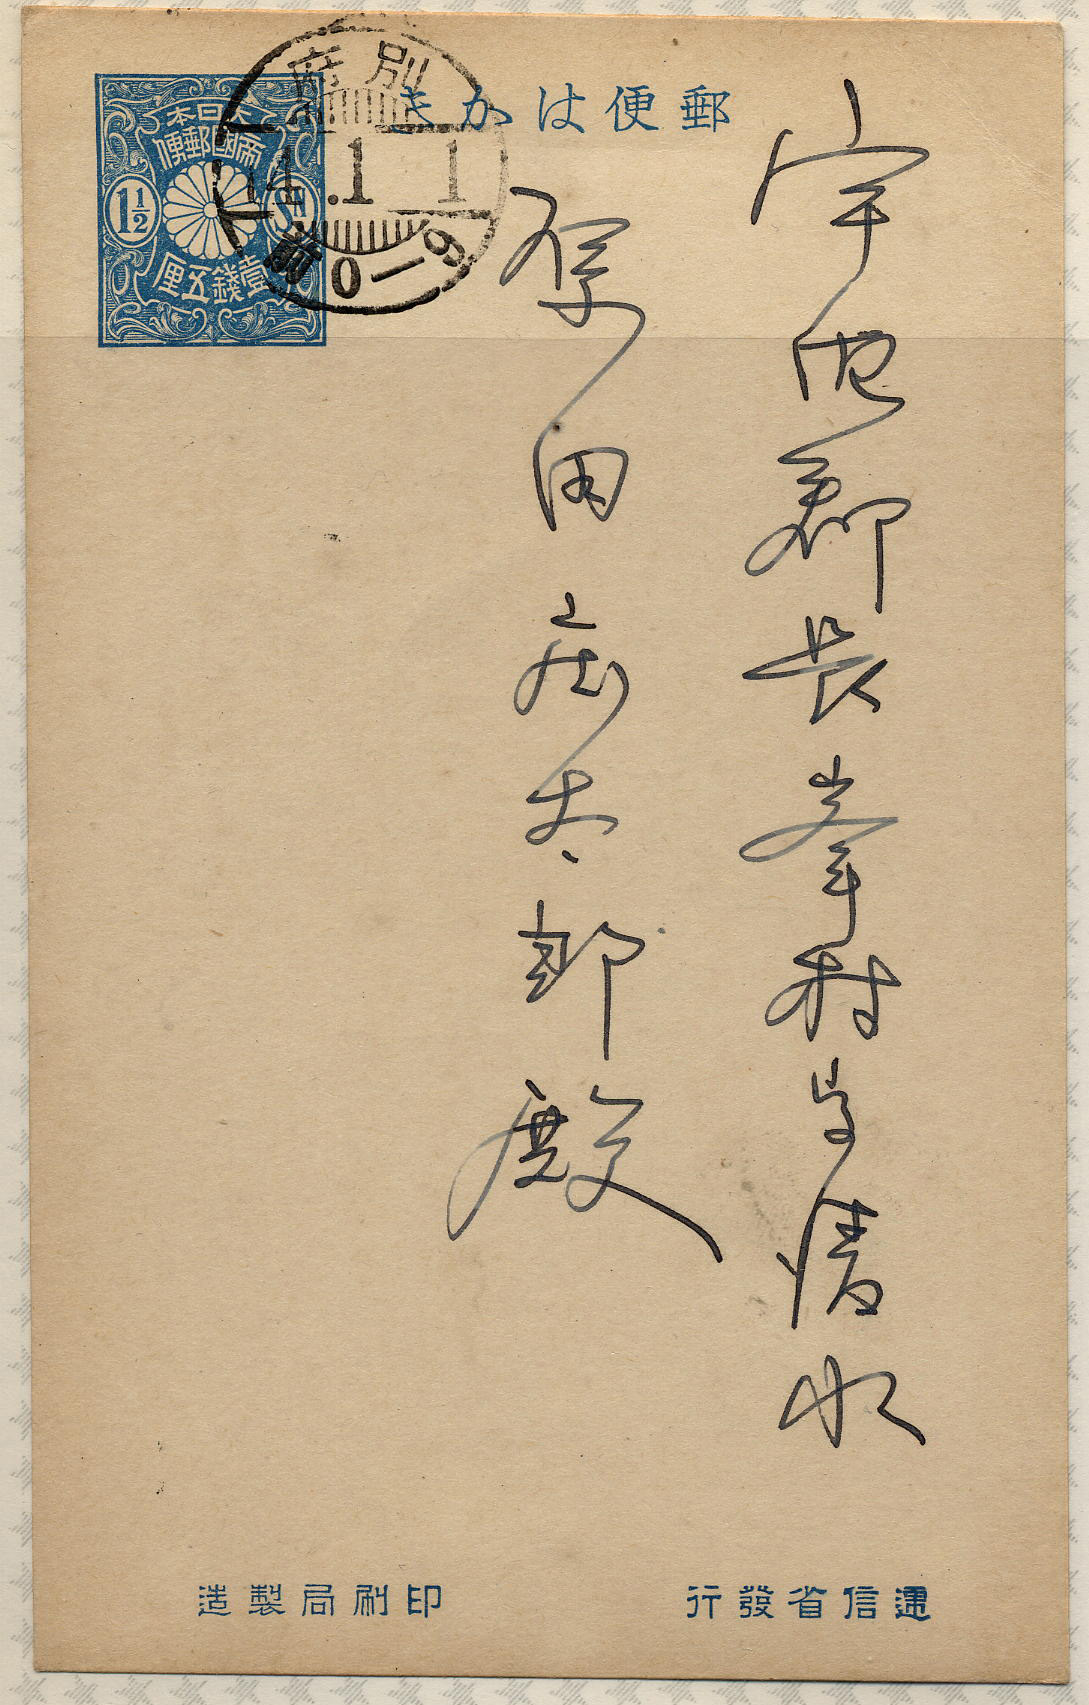 郵便はかき
大日本
帝國郵便
1½
SN
壹錢五厘
別府
14.1.1
前0-9
宇佐郡長峯村字清水
田 太郎殿
遞信省發行
印刷局製造